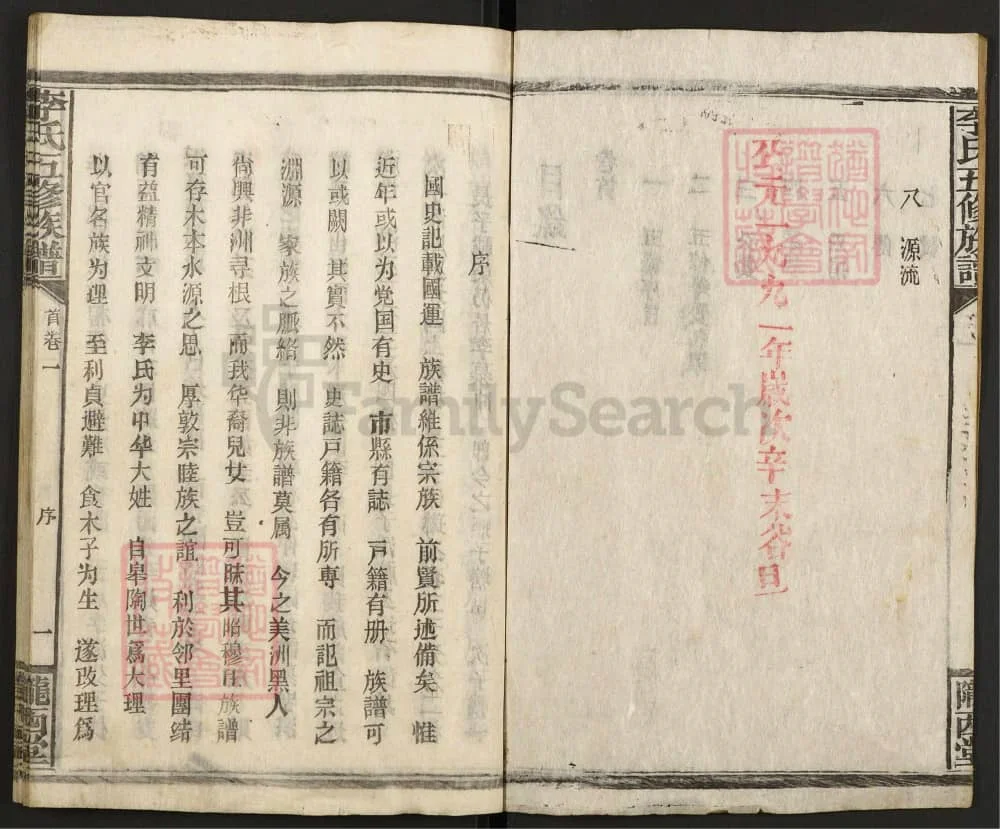 李氏五修族譜
八 源流
公元一九九一年歲次辛未谷旦
隴西堂
序
國史記載國運 族譜維係宗族 前賢所述備矣 惟
近年或以为党国有史 市縣有誌 戸籍有册 族譜可
以或闕 其實不然 史誌戸籍各有所専 而記祖宗之
淵源 家族之脈絡 則非族譜莫属 今之美洲黑人
尙興非洲寻根 而我华裔兒女 豈可昧其昭穆 族譜
可存木本水源之思 厚敦宗睦族之誼 利於邻里團结
有益精神文明 李氏为中华大姓 自皋陶世爲大理
以官名族为理 至利貞避難 食木子为生 遂改理爲
李氏五修族譜
首卷一
序
一
隴西堂
FamilySearch